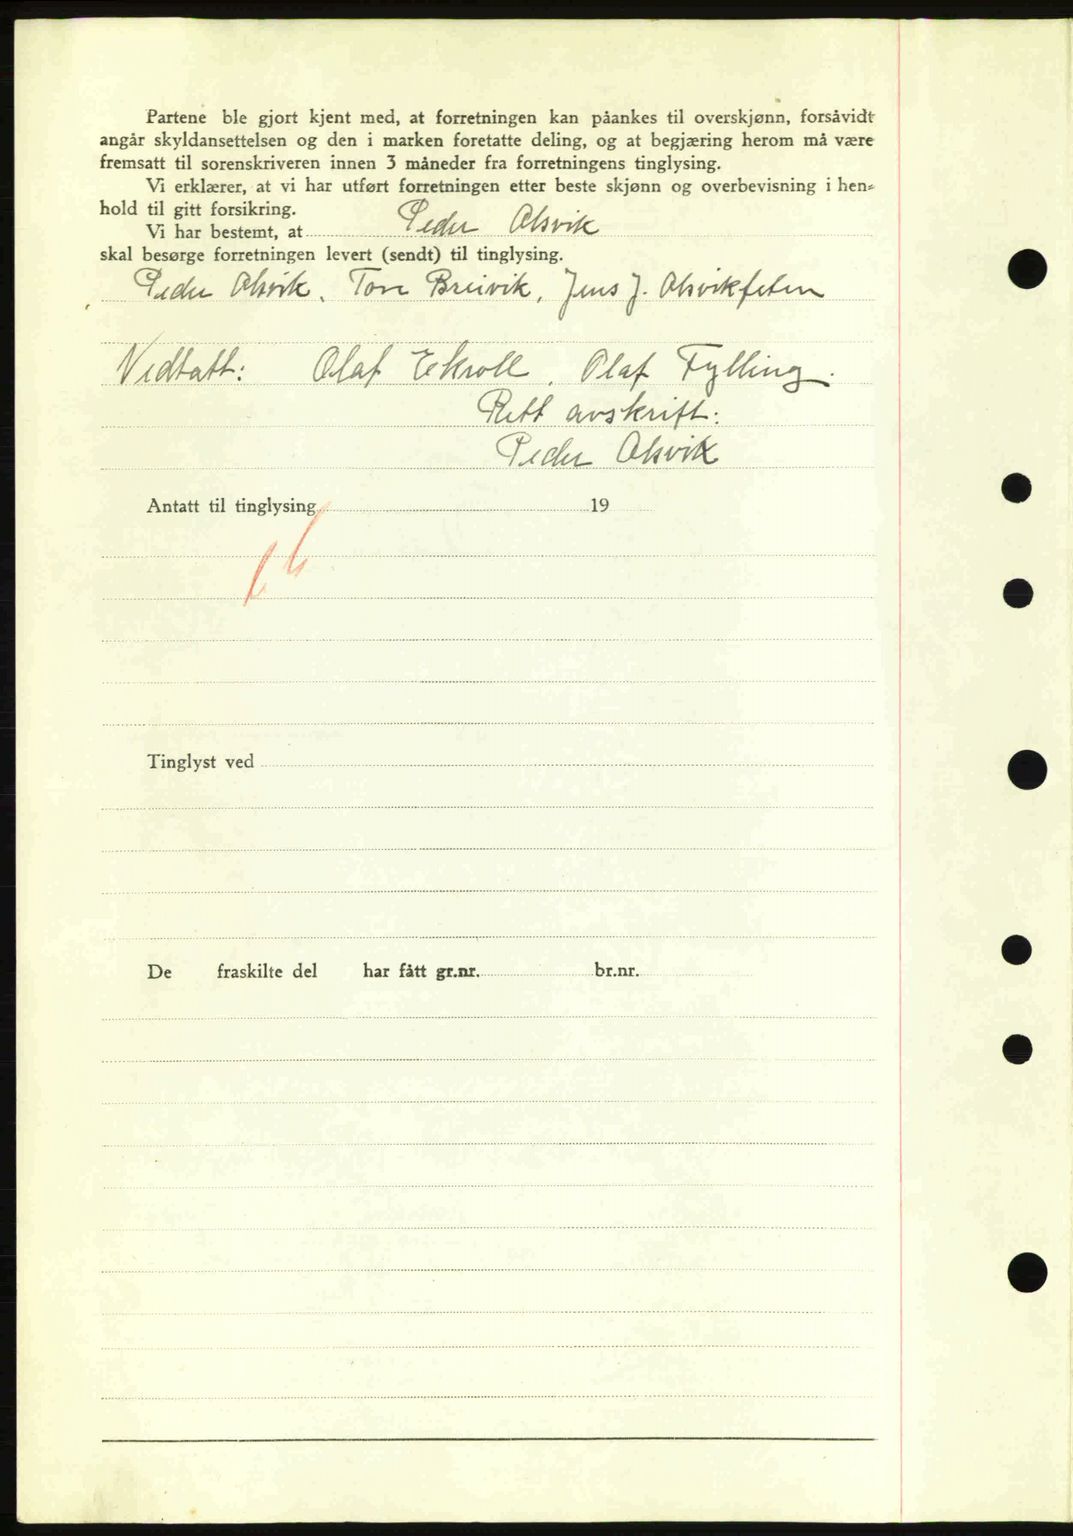 Partene ble gjort kjent med, at forretningen kan påankes til overskjønn, forsåvidt
angår skyldansettelsen og den i marken foretatte deling, og at begjæring herom må være
fremsatt til sorenskriveren innen 3 måneder fra forretningens tinglysing.
Vi erklærer, at vi har utført forretningen etter beste skjønn og overbevisning i hen-
hold til gitt forsikring.
Vi har bestemt, at Peder Alsvik
skal besørge forretningen levert (sendt) til tinglysing.
Peder Alsvik, Tore Breivik, Jens J. Alsvikfeten
Vedtatt: Olaf Ekroll, Olaf Fylling.
Rett avskrift:
Peder Alsvik
Antatt til tinglysing 19
Tinglyst ved
De fraskilte del har fått gr.nr. br.nr.